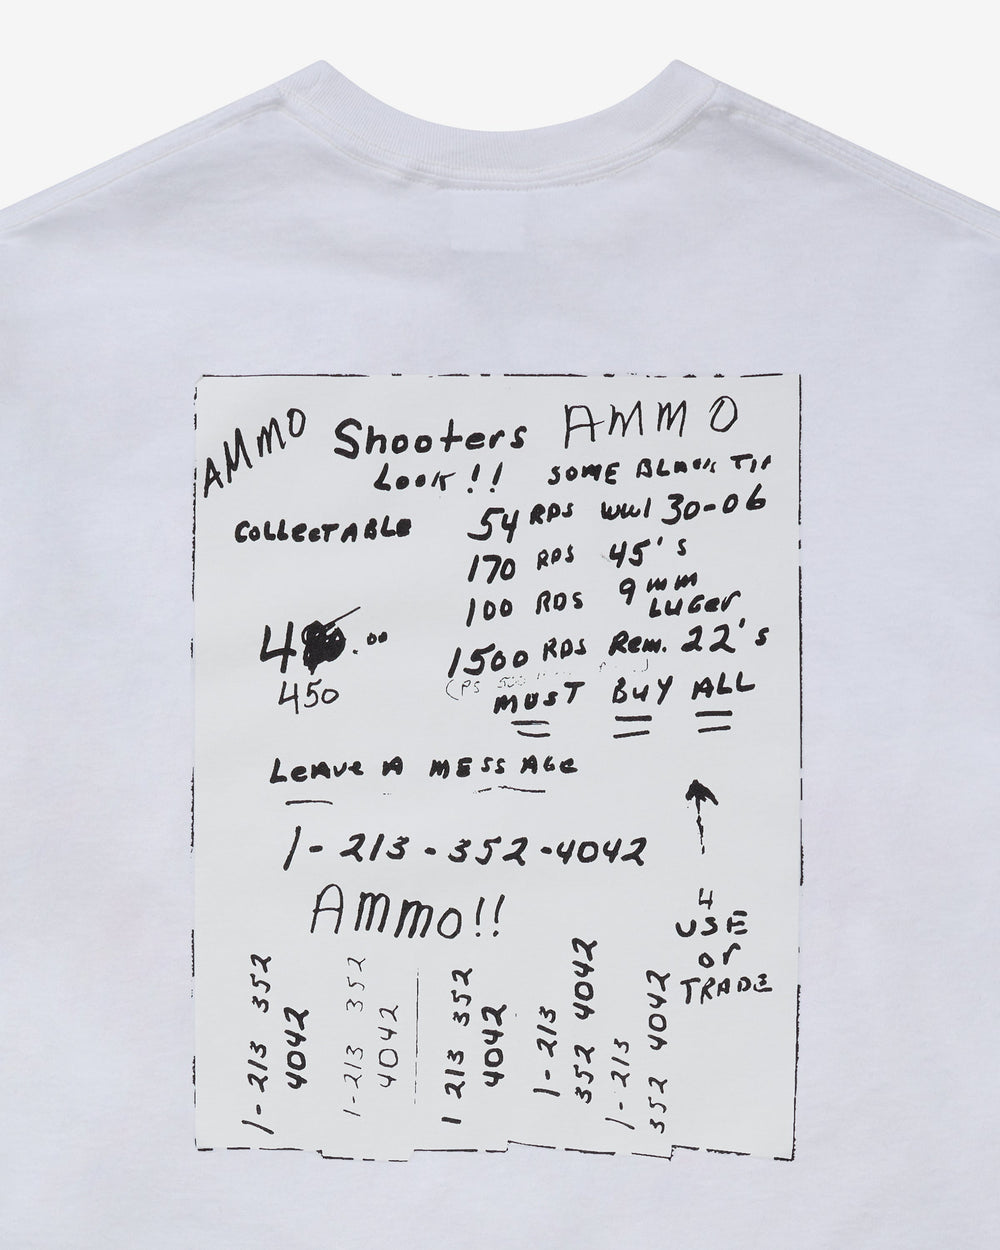 AMMO Shooters AMMO
Look!! SOME BLACK TIP
COLLECTABLE 54 RDS WWI 30-06
170 RDS 45's
100 RDS 9mm
LUGer
1500 RDS Rem. 22's
4 .00
(PS 500
450
MUST BUY ALL
LeAve A MESSAGe
1-213-352-4042
AMMO!!
4
USE
or
TRADE
1-213 352
4042
1-213 352
4042
1 213 352
4042
1-213
352 4042
1-213
352 4042